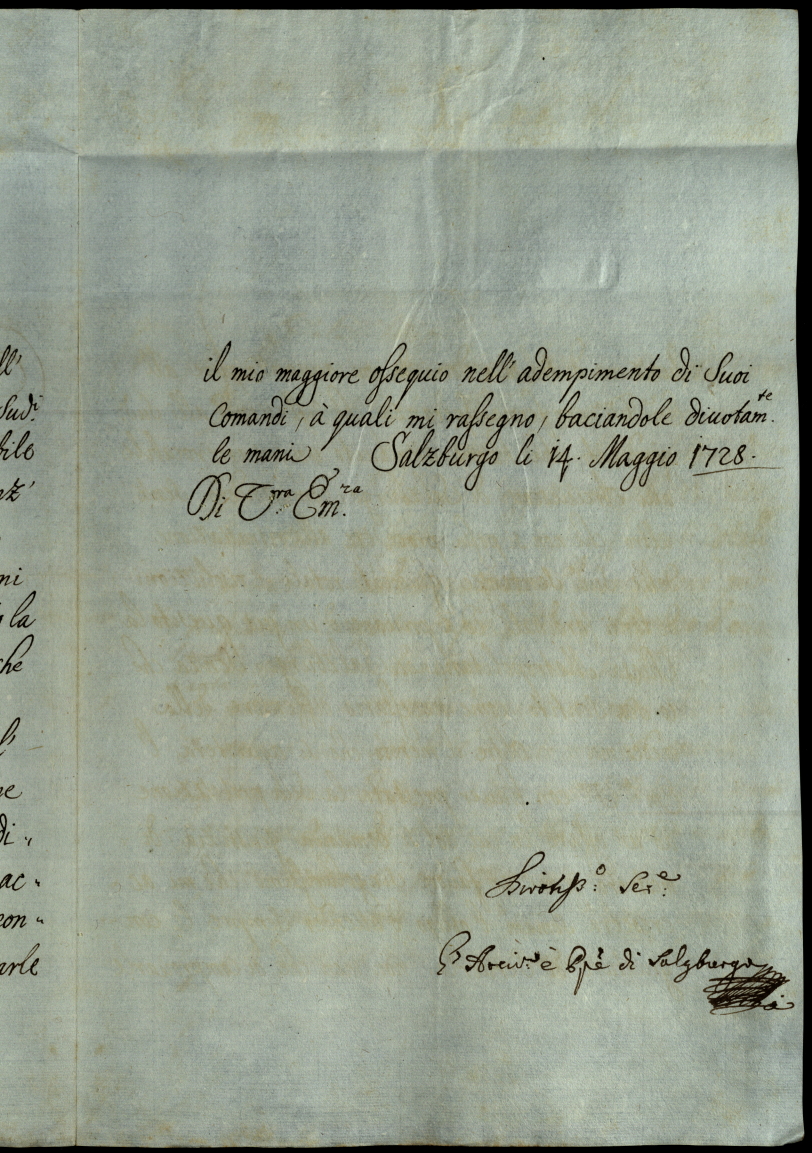 ll'
Sud.i
bile
nz'
ni
la
che
l'
ne
di„
ac„
con„
arle
il mio maggiore ossequio nell' adempimento di Suoi
Comandi, à quali mi rassegno, baciandole diuotam.te
le mani Salzburgo li 14. Maggio 1728.
Di V.ra Em.za
Divotiss.o Ser.e
L'Arciv.o è Ppe di Salzburgo